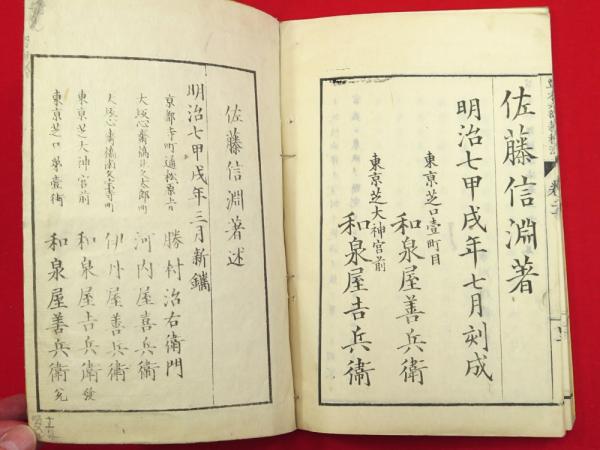 佐藤信淵著
明治七甲戌年七月刻成
東京芝口壹町目
和泉屋善兵衞
東京芝大神宮前
和泉屋吉兵衞
佐藤信淵著述
明治七甲戌年三月新鐫
京都寺町通松原上
勝村治右衛門
大坂心齋橋北久太郎町
河内屋喜兵衞
大坂心齋橋南久宝寺町
伊丹屋善兵衞
東京芝大神宮前
和泉屋吉兵衞 發
東京芝口第壹街
和泉屋善兵衞 兌